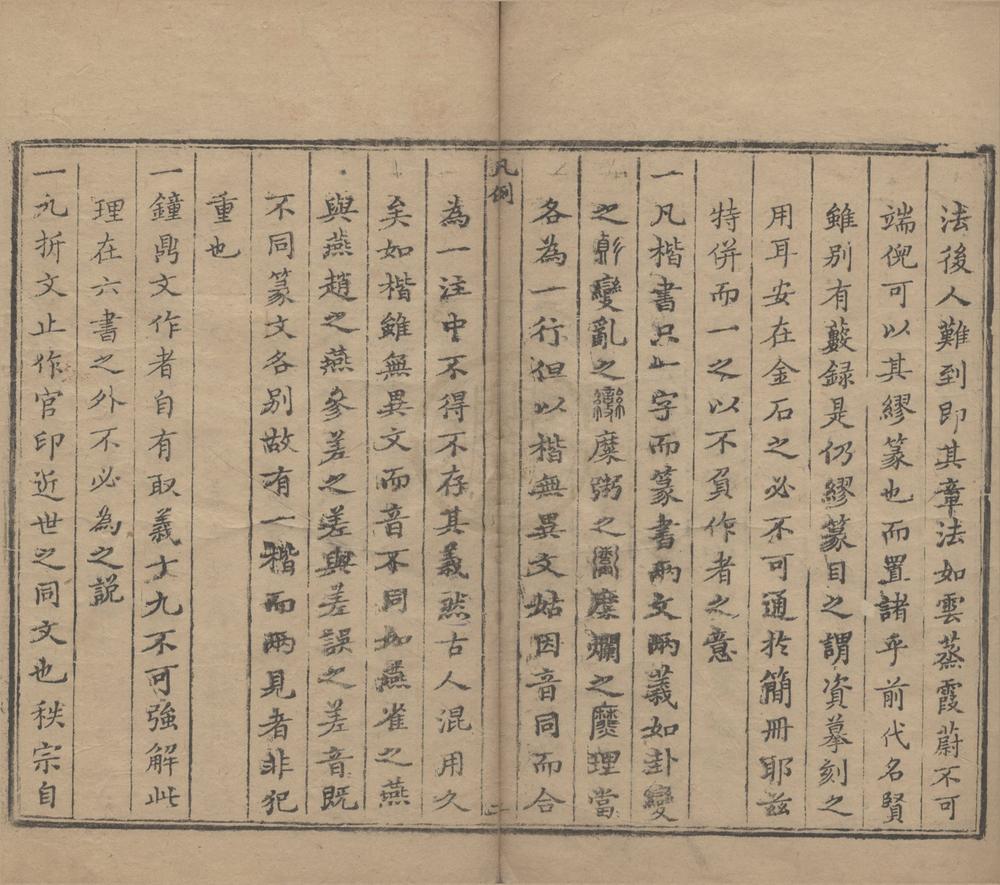 法後人難到即其章法如雲蒸霞蔚不可
端倪可以其繆篆也而置諸乎前代名賢
雖别有藪録是仍繆篆目之謂資摹刻之
用耳安在金石之必不可通於簡冊耶兹
特併而一之以不負作者之意
一凡楷書只一字而篆書兩文兩義如卦變
之變亂之糜粥之糜爛之理當
各為一行但以楷無異文姑因音同而合
凡例
二
為一注中不得不存其義然古人混用久
矣如楷雖無異文而音不同如燕雀之燕
與燕趙之燕參差之差與差誤之差音既
不同篆文各别故有一楷而兩見者非犯
重也
一鐘鼎文作者自有取義十九不可強解此
理在六書之外不必為之説
一九折文止作官印近世之同文也秩宗自